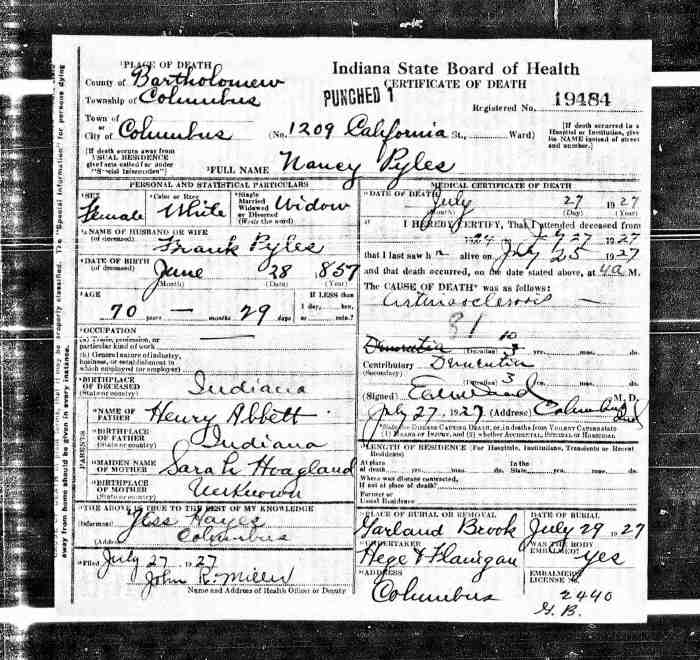 ¹PLACE OF DEATH
County of Bartholomew
Township of Columbus
Town of
or
City of Columbus
Indiana State Board of Health
CERTIFICATE OF DEATH
PUNCHED 1
Registered No. 19484
(No. 1209 California St., Ward)
[If death occurred in a Hospital or Institution, give its NAME instead of street and number.]
[If death occurs away from USUAL RESIDENCE give facts called for under "Special Information"]
²FULL NAME Nancy Pyles
PERSONAL AND STATISTICAL PARTICULARS
³SEX Female
⁴Color or Race White
⁵Single Married Widowed or Divorced (Write the word) Widow
⁶NAME OF HUSBAND OR WIFE (of deceased) Frank Pyles
⁷DATE OF BIRTH (of deceased) June 28 1857
(Month) (Date) (Year)
⁸AGE 70 — months 29 days
If LESS than 1 day, hrs. or min.?
⁹OCCUPATION —
(a) Trade, profession, or particular kind of work
(b) General nature of industry, business, or establishment in which employed (or employer)
BIRTHPLACE OF DECEASED (State or country) Indiana
PARENTS
NAME OF FATHER Henry Abbett
BIRTHPLACE OF FATHER (State or country) Indiana
MAIDEN NAME OF MOTHER Sarah Hoagland
BIRTHPLACE OF MOTHER (State or country) Unknown
THE ABOVE IS TRUE TO THE BEST OF MY KNOWLEDGE
(Informant) Hayes
(Address) Columbus
Filed July 27 1927
John R. Miller
Name and Address of Health Officer or Deputy
MEDICAL CERTIFICATE OF DEATH
DATE OF DEATH July 27 1927
(Month) (Day) (Year)
I HEREBY CERTIFY, That I attended deceased from
1924 27 1927
that I last saw h alive on July 25 1927
and that death occurred, on the date stated above, at 4 a M.
The CAUSE OF DEATH* was as follows:
81
10
Dementia (Duration) 3 yrs. mos. ds.
Contributory Dementia
(Secondary) (Duration) 3 yrs. mos. ds.
(Signed) M. D.
July 27, 1927 (Address) Columbus Ind
*State the DISEASE CAUSING DEATH, or, in deaths from VIOLENT CAUSES state (1) MEANS OF INJURY, and (2) whether ACCIDENTAL, SUICIDAL or HOMICIDAL
LENGTH OF RESIDENCE (For Hospitals, Institutions, Transients or Recent Residents)
At place of death yrs. mos. ds. In the State yrs. mos. ds.
Where was disease contracted, if not at place of death?
Former or Usual Residence
PLACE OF BURIAL OR REMOVAL Garland Brook
DATE OF BURIAL July 29 1927
UNDERTAKER Hege & Flanigan
WAS THE BODY EMBALMED? Yes
ADDRESS Columbus
EMBALMER'S LICENSE No. 2440
H. B.